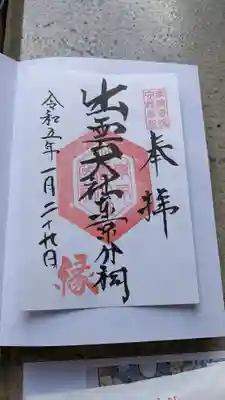 奉拝
出雲大社東京分祠
令和五年一月二十九日
縁